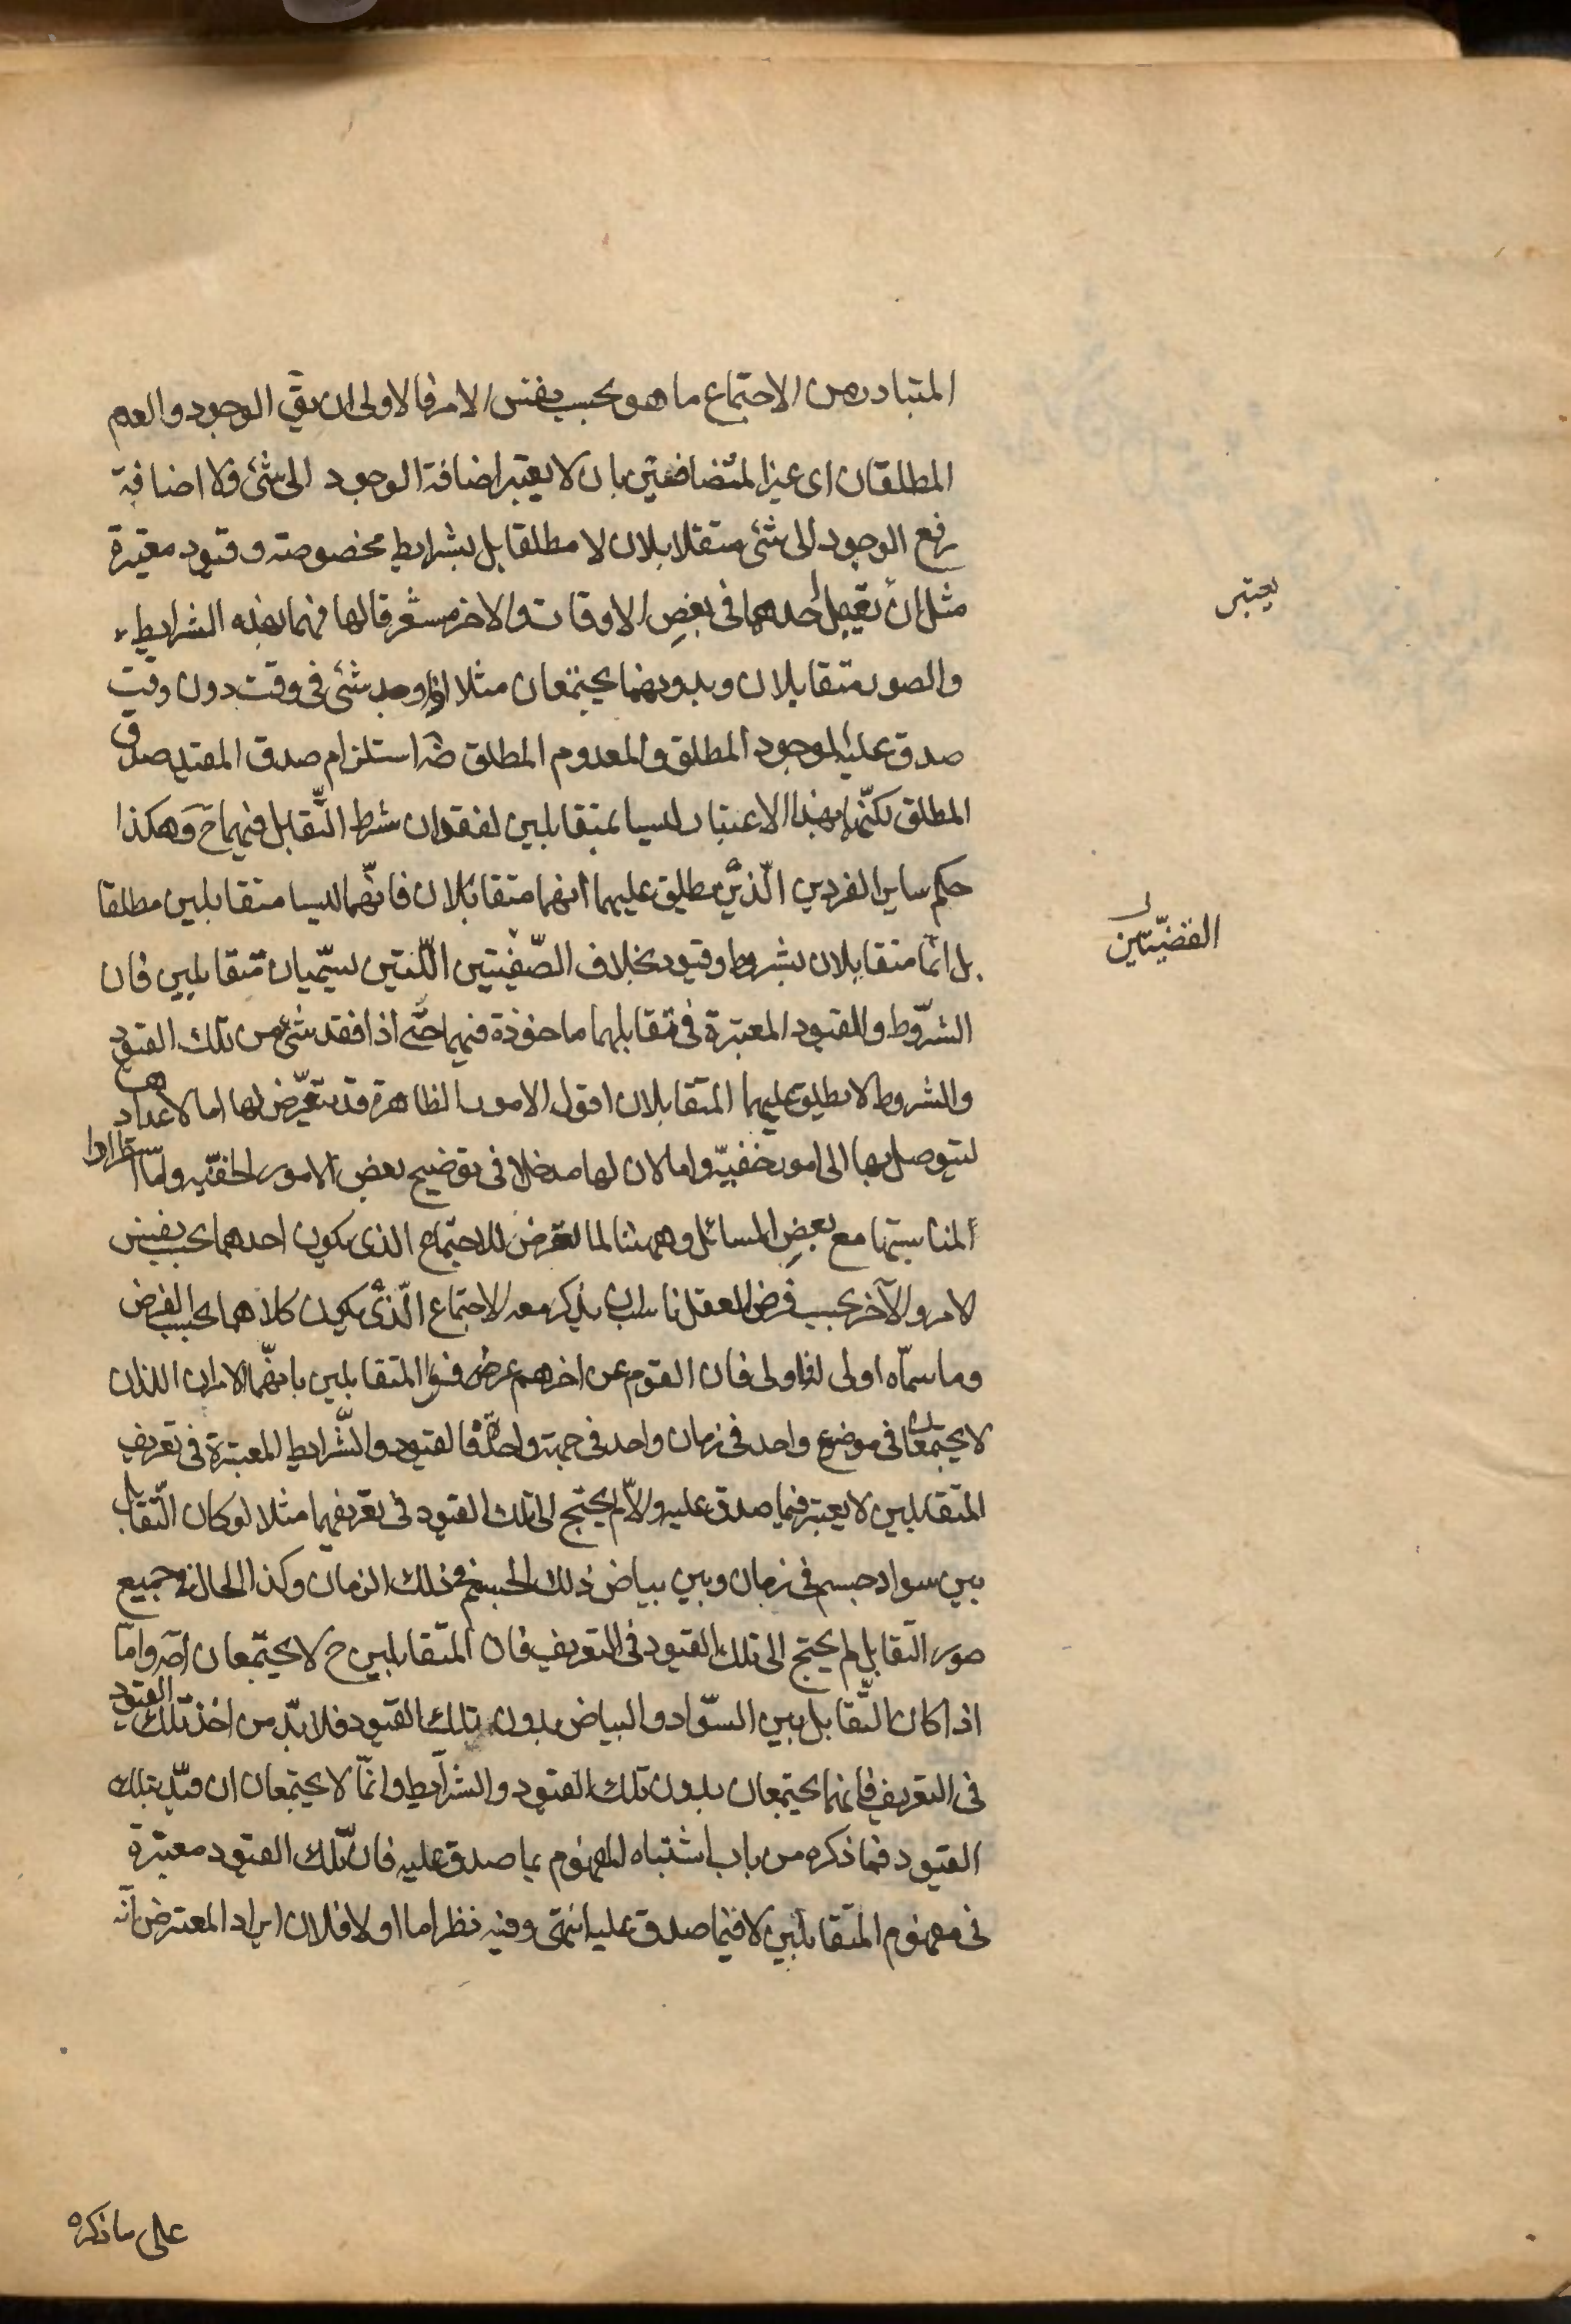 المتبادر من الاجتماع ما هو بحسب نفس الامر فالاولى ان يقٓ الوجود والعدم
المطلقان اى غير المتضافعين بان لا يعتبر اضافة الوجود الى شئ ولا اضافة
رفع الوجود الى شئ متقلابلان لا مطلقا بل بشرايط مخصوصة وقيود معتبرة
مثل ان أحدهما فى بعضِ الاوقات والاخر مستغرقا لها فهما بهذه الشرايط
والصور متقابلان وبدونهما يجتمعان مثلا اذا وجد شئ فى وقت دون وقت
صدق عليه الموجود المطلق والمعدوم المطلق ضٓ استلزام صدق المقيد صدق
المطلق لكنّهما بهذا الاعتبار ليسا بمتقابلين لفقدان شرط التّقابل فيهما حَ وَهكذا
حكم ساير الفردين الّذين يطلق عليهما أنهما متقابلان فانّهما ليسا متقابلين مطلقا
بل انّما متقابلان بشروط وقيود بخلاف الصّفيتين اللّتين يسمّيان متقابلين فان
الشرّوط والقيود المعتبرة فى تقابلهما ماخوذة فيهما حتّى اذا فقد شئ من تلك القيود
والشروط لا يطلق عليهما المتقابلان اقول الامور الظاهرة قد يتعرّض لها اما لاعداد
ليتوصل بها الى امور خفيّة واما لان لها مدخلا فى توضيح بعض الامور الخفيّة واما استطرادا
ألمناسبتها مع بعضِ المسائل وههنا لما تعرض للاجتماع الذى يكون احدهما بحسب نفس
الامر والآخر بحسب فرض العقل ناسب ان يذكر معه الاجتماع الّذى يكون كلاهما بحسب الفرض
وما سمّاه اولى فان القوم عن اخرهم عرفوا المتقابلين بانهّما الامران اللذان
لا يجتمعان فى موضوع واحد فى زمان واحد فى جهة واحدة فالقيود والشّرايط المعتبرة فى تعريف
المتقابلين لا يعتبر فيما صدق عليه والاّ لم يحتج الى تلك القيود فى تعريفهما مثلا لو كان التّقابل
بين سواد جسم فى زمان وبين بياض ذلك الجسم فى ذلك الزمان وكذا الحال فى جميع
صور التقابل لم يحتج الى تلك القيود فى التعريف فان المتقابلين ح لا يجتمعان اصٓ وامّا
اذا كان التّقابل بين السّواد والبياض بدون تلك القيود فلابدّ من اخذ تلك القيود
فى التعريف فانهما يجتمعان بدون تلك القيود والشرايط وانمّا لا يجتمعان ان قيّد بتلك
القيود فما ذكره من باب أشتباه المفهوم بما صدق عليه فان تلك القيود معتبرة
فى مفهوم المتقابلين لا فيما صدق عليه انتهى وفيه نظر اما اولا فلان ايراد المعترض انّه
يعتبر
القضيّتين
على ما ذكره